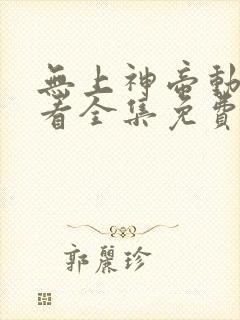 無上神帝動
看全集免費
郭麗珍